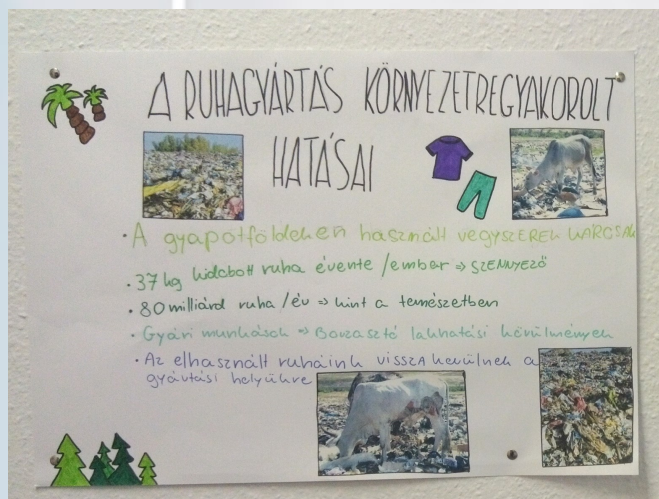 A RUHAGYÁRTÁS KÖRNYEZETREGYAKOROLT
HATÁSAI
• A gyapotföldeken használt vegyszerek károsak
• 37 kg kidobott ruha évente /ember ⇒ SZENNYEZŐ
• 80 milliárd ruha /év ⇒ kint a természetben
• Gyári munkások ⇒ Borzasztó lakhatási körülmények
• Az elhasznált ruháink vissza kerülnek a
gyártási helyükre